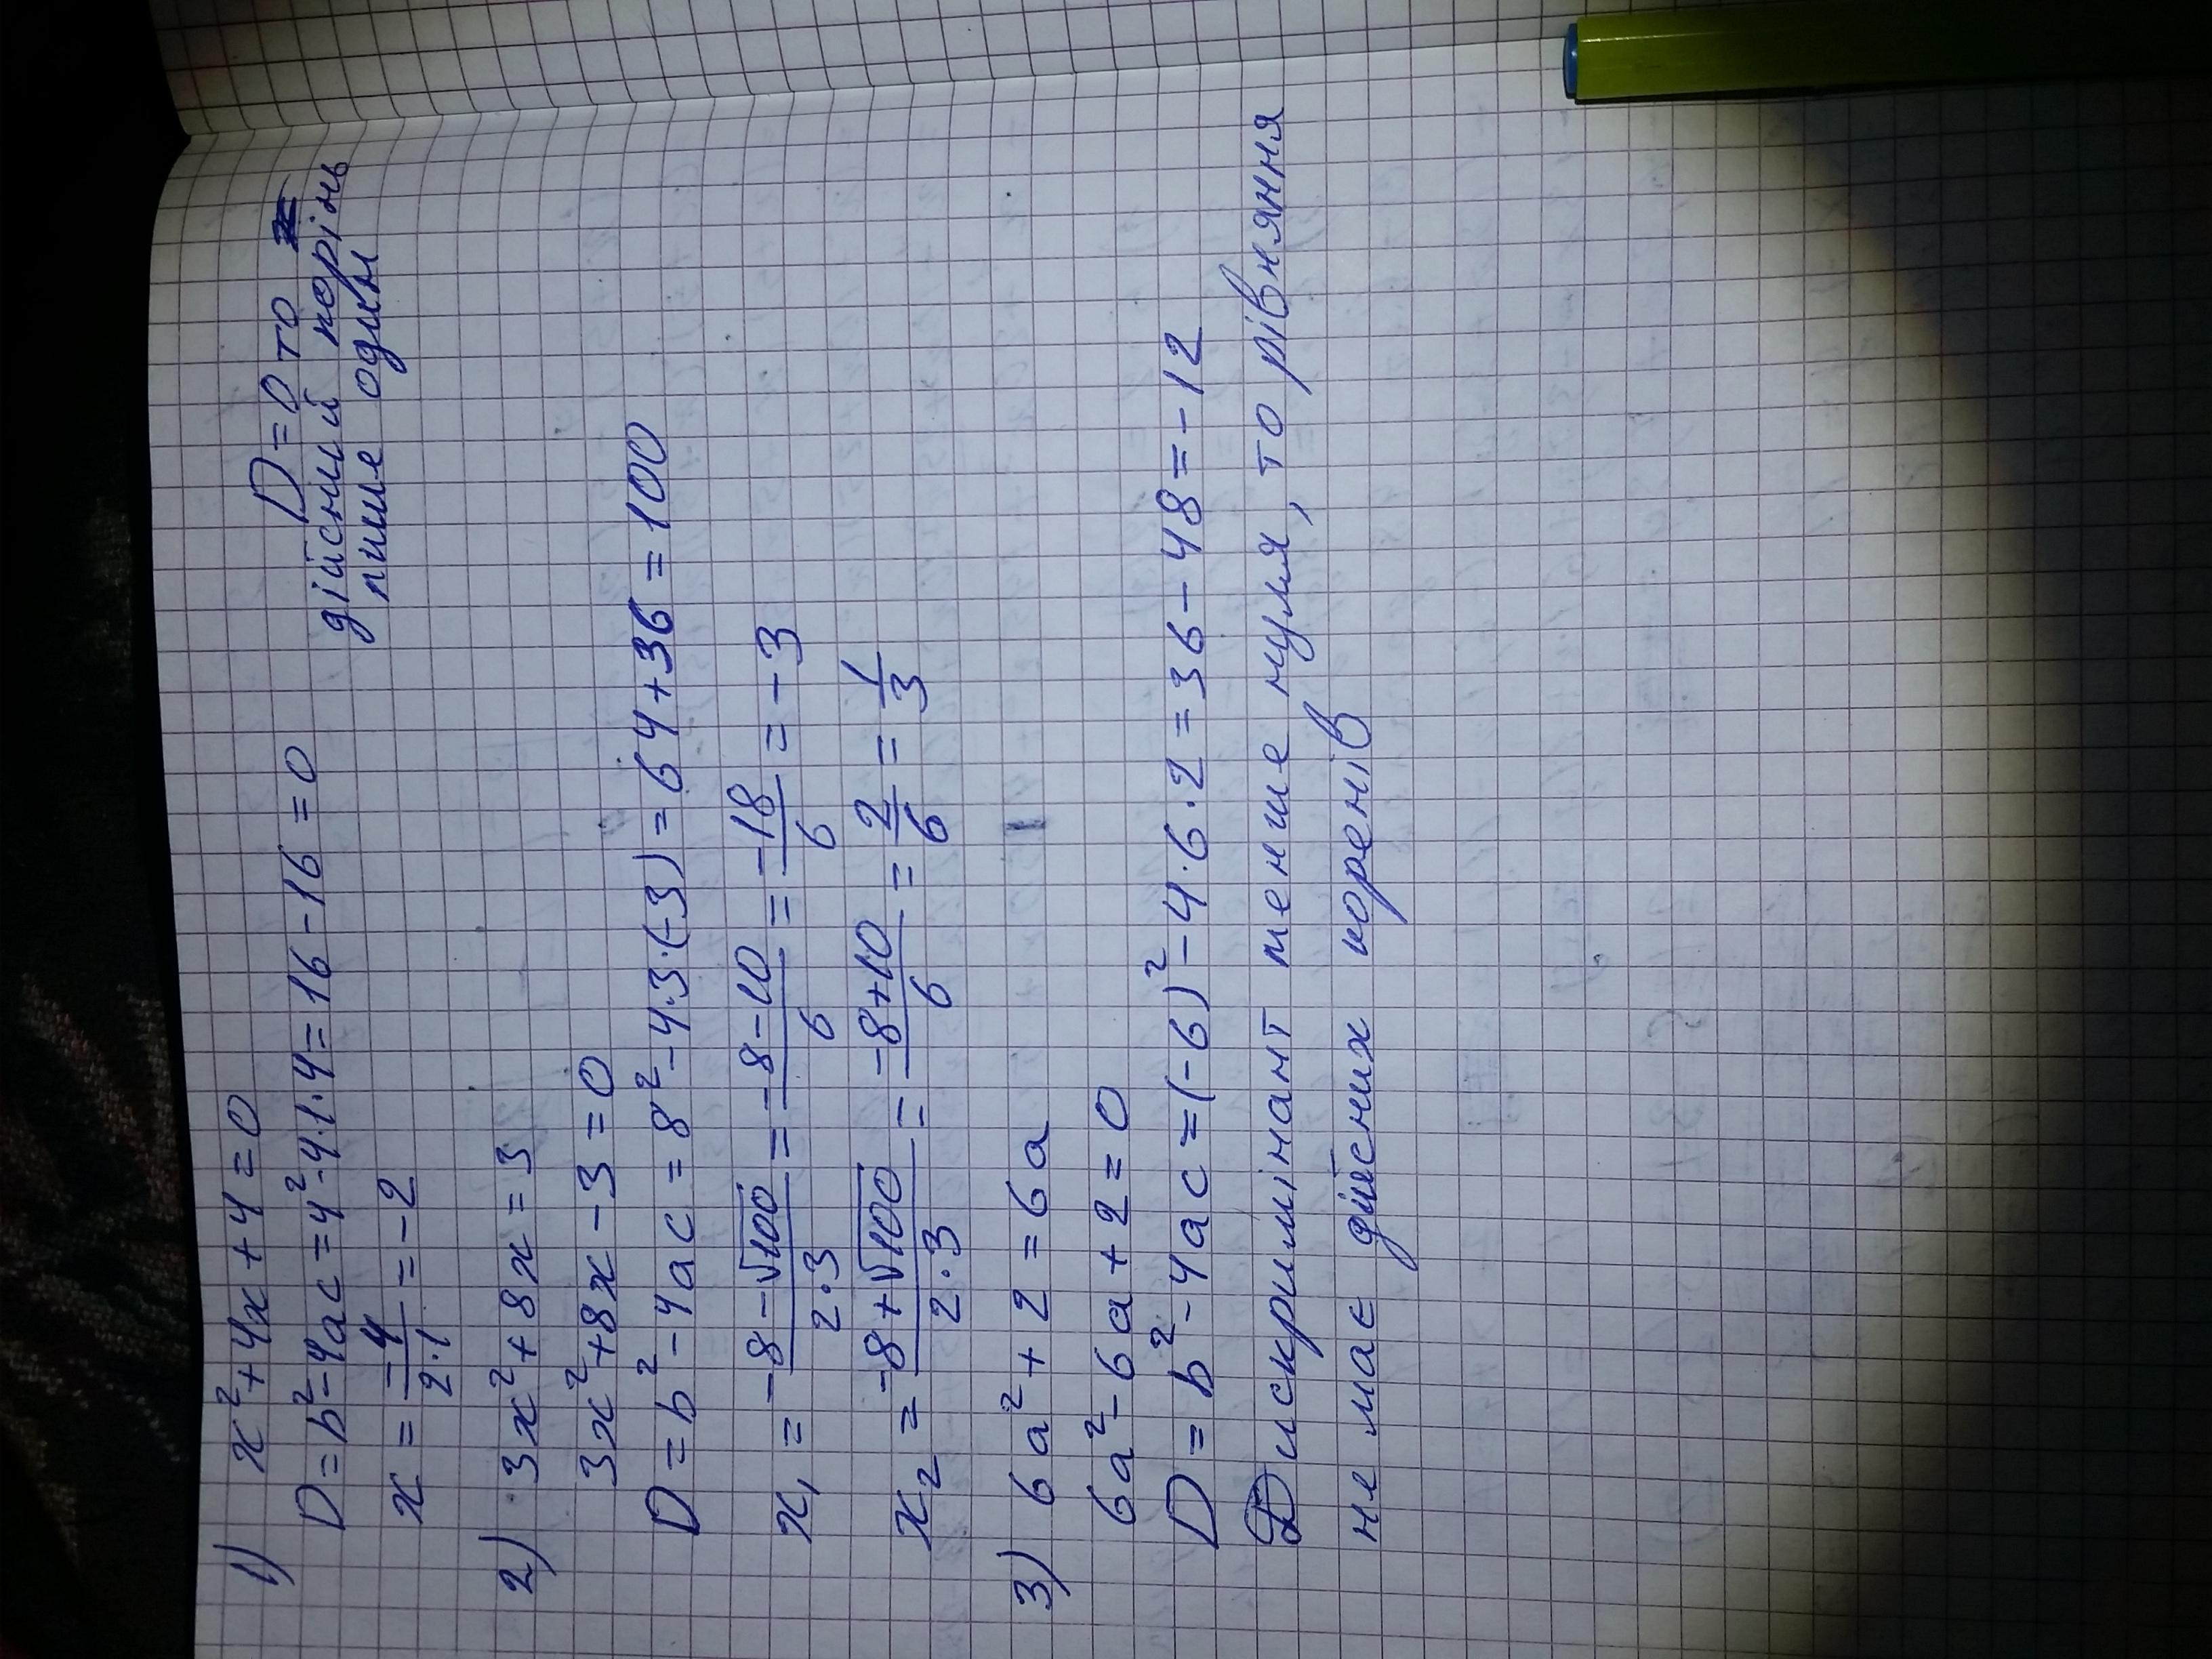 1) x²+4x+4=0
D=b²-4ac=4²-4·1·4=16-16=0 D=0 то
дійсний корінь
лише один
x=-4/2·1=-2
2) 3x²+8x=3
3x²+8x-3=0
D=b²-4ac=8²-4·3·(-3)=64+36=100
x₁=-8-√100/2·3=-8-10/6=-18/6=-3
x₂=-8+√100/2·3=-8+10/6=2/6=1/3
3) 6a²+2=6a
6a²-6a+2=0
D=b²-4ac=(-6)²-4·6·2=36-48=-12
Дискримінант менше нуля, то рівняння
не має дійсних коренів